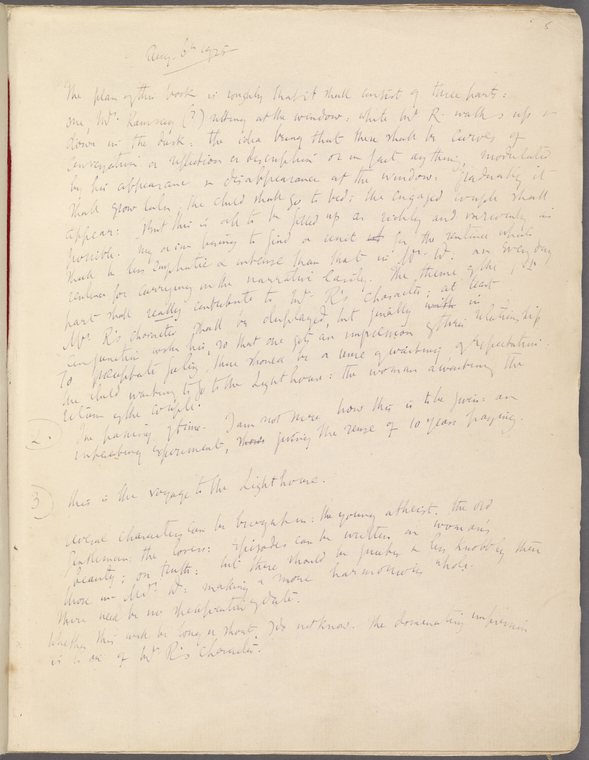 Aug. 6th 1925
The plan of this book is roughly that it shall consist of three parts:
one, Mrs. Ramsay (?) sitting at the window: while Mr R. walks up &
down in the dusk: the idea being that there shall be curves of
conversation, or reflection or description or in fact anything, modulated
by his appearance & disappearance at the window: gradually it
shall grow later; the child shall go to bed; the engaged couple shall
appear: But this is all to be filled up as richly and variously as
possible. My aim being to find a unit for the sentence which
shall be less emphatic & intense than that in Mrs. D: an everyday
sentence for carrying on the narrative easily. The theme of the 1st
part shall really contribute to Mrs R's character; at least
Mrs R's character shall be displayed, but finally in
conjunction with his, so that one gets an impression of their relationship.
To precipitate feeling, there should be a sense of waiting, of expectation:
the child waiting to go to the Lighthouse: the woman awaiting the
return of the couple.
2. The passing of time. I am not sure how this is to be given: an
interesting experiment, giving the sense of 10 years passing.
3 This is the voyage to the Lighthouse.
Several characters can be brought in: the young atheist, the old
gentleman: the lovers: Episodes can be written on woman's
beauty; on truth: but these should be & less knobbly than
those in Mrs D: making a more harmonious whole.
There need be no specification of date.
Whether this will be long or short, I do not know. The dominating impression
is to be of Mrs R's character.